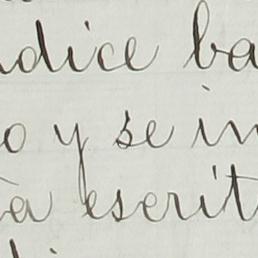 ndice ba
o y se in
ta escrit